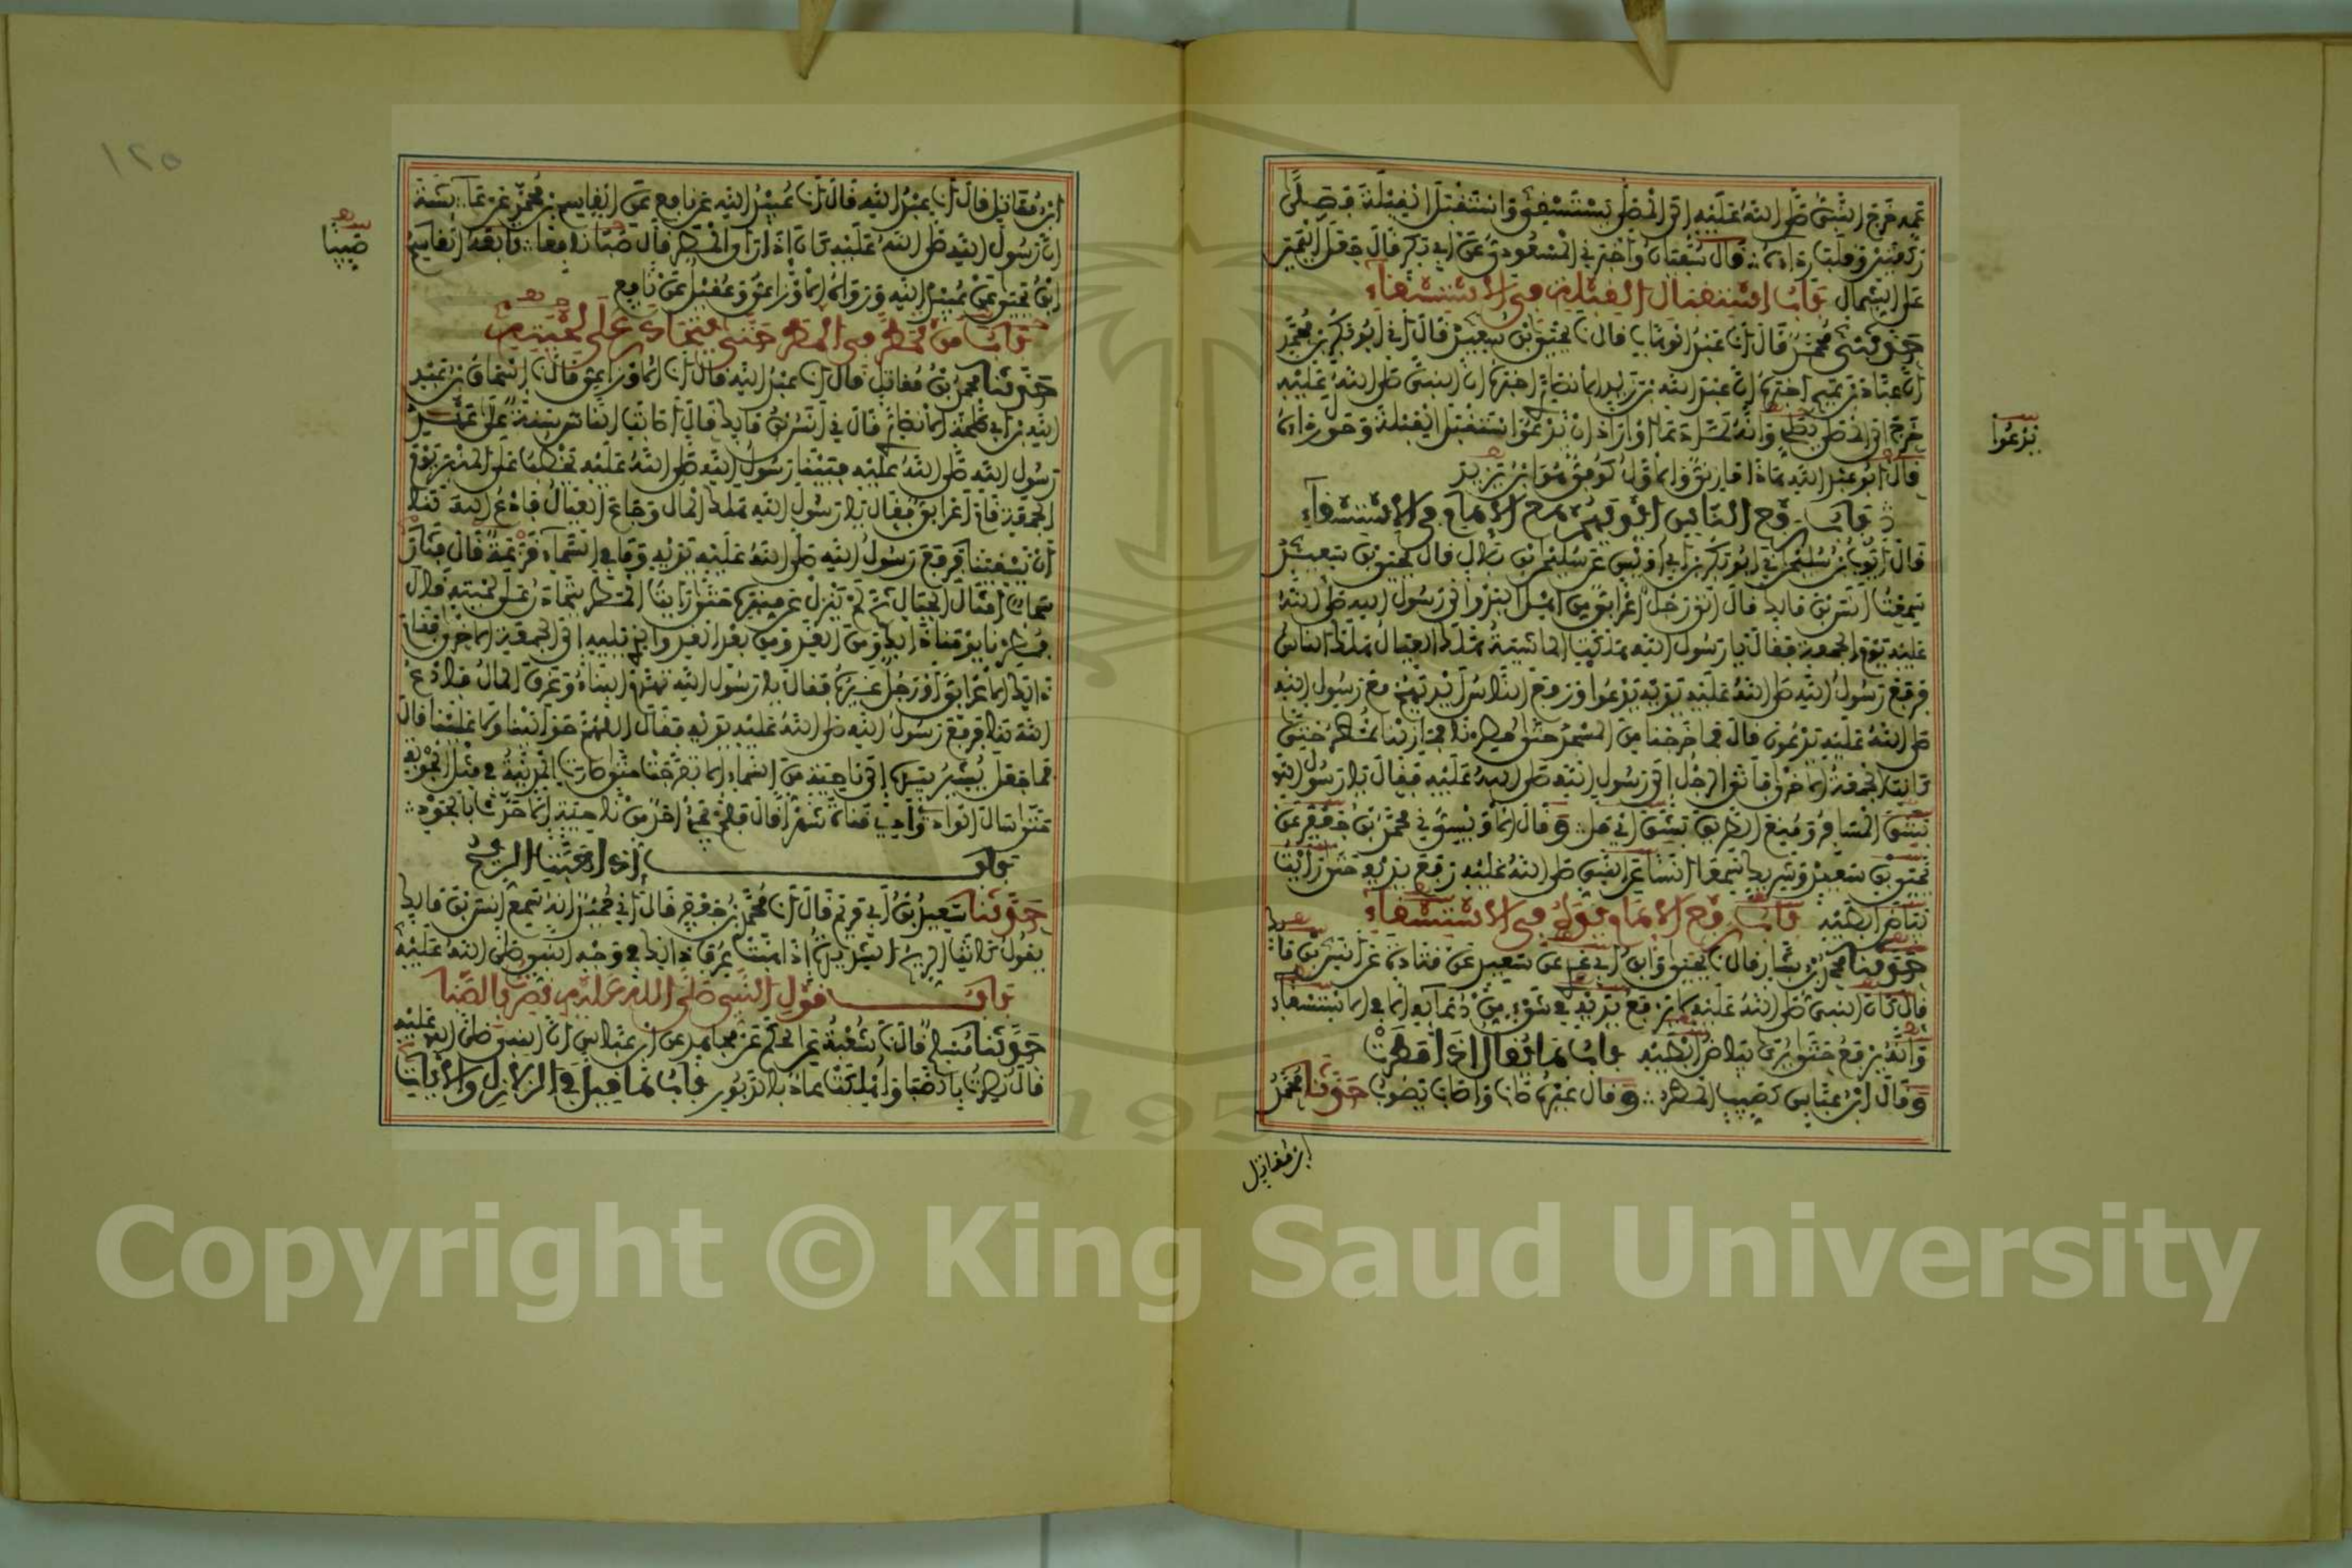 عمه خرج النبي صلى الله عليه إلى المصلى يستسقي واستقبل القبلة فصلى
ركعتين وقلب رداءه قال سفيان وأخبرني المسعودي عن أبي بكر قال جعل اليمين
على الشمال باب استقبال القبلة في الاستسقاء
حدثني محمد قال أنا عبد الوهاب قال نا يحيى بن سعيد قال أني أبو بكر بن محمد
أن عباد بن تميم أخبره أن عبد الله بن زيد الأنصاري أخبره أن النبي صلى الله عليه
خرج إلى المصلى يصلي وأنه لما دعا أو أراد أن يدعو استقبل القبلة وحول رداءه
يدعوا
قال أبو عبد الله هذا مازني والأول كوفي هو ابن يزيد
باب رفع الناس أيديهم مع الإمام في الاستسقاء
قال أيوب بن سليمن ني أبو بكر بن أبي أويس عن سليمن بن بلال قال يحيى بن سعيد
سمعت أنس بن مالك قال أتى رجل أعرابي من أهل البدو إلى رسول الله صلى الله
عليه يوم الجمعة فقال يا رسول الله هلكت الماشية هلك العيال هلك الناس
فرفع رسول الله صلى الله عليه يديه يدعوا ورفع الناس أيديهم مع رسول الله
صلى الله عليه يدعون قال فما خرجنا من المسجد حتى مطرنا فما زلنا نمطر حتى
كانت الجمعة الأخرى فأتى الرجل إلى رسول الله صلى الله عليه فقال يا رسول الله
بشق المسافر ومنع الطريق بشق أي مل وقال الأويسي ني محمد بن جعفر عن
يحيى بن سعيد وشريك سمعا أنسا عن النبي صلى الله عليه رفع يديه حتى رأيت
بياض إبطيه باب رفع الإمام يده في الاستسقاء
حدثنا محمد بن بشار قال نا يحيى وابن أبي عدي عن سعيد عن قتادة عن أنس بن مالك
قال كان النبي صلى الله عليه لا يرفع يديه في شيء من دعائه إلا في الاستسقاء
وأنه يرفع حتى يرى بياض إبطيه باب ما يقال إذا مطرت
وقال ابن عباس كصيب المطر وقال غيره صاب وأصاب يصوب حدثنا محمد
ابن مقاتل
١٢٥
ابن مقاتل قال أنا عبد الله قال أنا عبيد الله عن نافع عن القاسم بن محمد عن عائشة
أن رسول الله صلى الله عليه كان إذا رأى المطر قال صيبا نافعا تابعه القاسم
صيبا
ابن يحيى عن عبيد الله ورواه الأوزاعي وعقيل عن نافع
باب من تمطر في المطر حتى يتحادر على لحيته
حدثنا محمد بن مقاتل قال أنا عبد الله قال أنا الأوزاعي قال نا إسحاق بن عبد
الله بن أبي طلحة الأنصاري قال ني أنس بن مالك قال أصابت الناس سنة على عهد
رسول الله صلى الله عليه فبينا رسول الله صلى الله عليه يخطب على المنبر يوم
الجمعة قام أعرابي فقال يا رسول الله هلك المال وجاع العيال فادع الله لنا
أن يسقينا فرفع رسول الله صلى الله عليه يديه وما في السماء قزعة قال فثار
سحاب أمثال الجبال ثم لم ينزل عن منبره حتى رأيت المطر يتحادر على لحيته قال
فمطرنا يومنا ذلك ومن الغد ومن بعد الغد والذي يليه إلى الجمعة الأخرى فقام
ذلك الأعرابي أو رجل غيره فقال يا رسول الله تهدم البناء وغرق المال فادع
الله لنا فرفع رسول الله صلى الله عليه يديه فقال اللهم حوالينا ولا علينا قال
فما جعل يشير بيده إلى ناحية من السماء إلا تفرجت حتى صارت المدينة في مثل الجوبة
حتى سال الوادي وادي قناة شهرا قال فلم يجئ أحد من ناحية إلا حدث بالجود
باب إذا هبت الريح
حدثنا سعيد بن أبي مريم قال أنا محمد بن جعفر قال أني حميد أنه سمع أنس بن مالك
يقول كانت الريح الشديدة إذا هبت عرف ذلك في وجه النبي صلى الله عليه
باب قول النبي صلى الله عليه نصرت بالصبا
حدثنا مسلم قال نا شعبة عن الحكم عن مجاهد عن ابن عباس أن النبي صلى الله عليه
قال نصرت بالصبا وأهلكت عاد بالدبور باب ما قيل في الزلازل والآيات
Copyright © King Saud University
1957